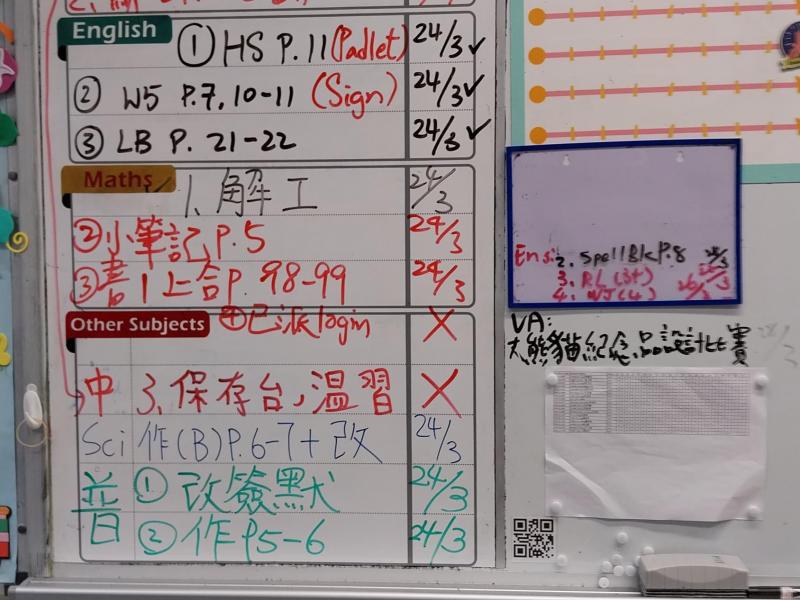 English
① HS P.11 (Padlet) 24/3 ✓
② W5 P.7, 10-11 (Sign) 24/3 ✓
③ LB P. 21-22 24/3 ✓
Maths
1. 解工 24/3
② 小筆記 P.5 24/3
③ 書1上合P. 98-99 24/3
Other Subjects ④ 已派login X
中 3. 保存台,溫習 X
Sci 作(B)P.6-7+改 24/3
普 ① 改簽默 24/3
② 作 P5-6 24/3
Eng: 2. Spell Blk P.8 24/3
3. RL (3+)
4. WJ (4) 26/3
VA:
大熊貓紀念品設計比賽